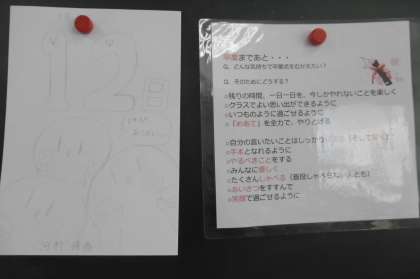 12
日
卒業まであと・・・
Q. どんな気持ちで卒業式をむかえたい？
Q. そのためにどうする？
○残りの時間、一日一日を、今しかやれないことを楽しく
○クラスでよい思い出ができるように
○いつものように過ごせるように
○「めあて」を全力で、やりとげる
○自分の言いたいことはしっかり
○手本となれるように
○やるべきことをする
○みんなに優しく
○たくさんしゃべる（普段しゃべらない人とも）
○あいさつをすすんで
○笑顔で過ごせるように